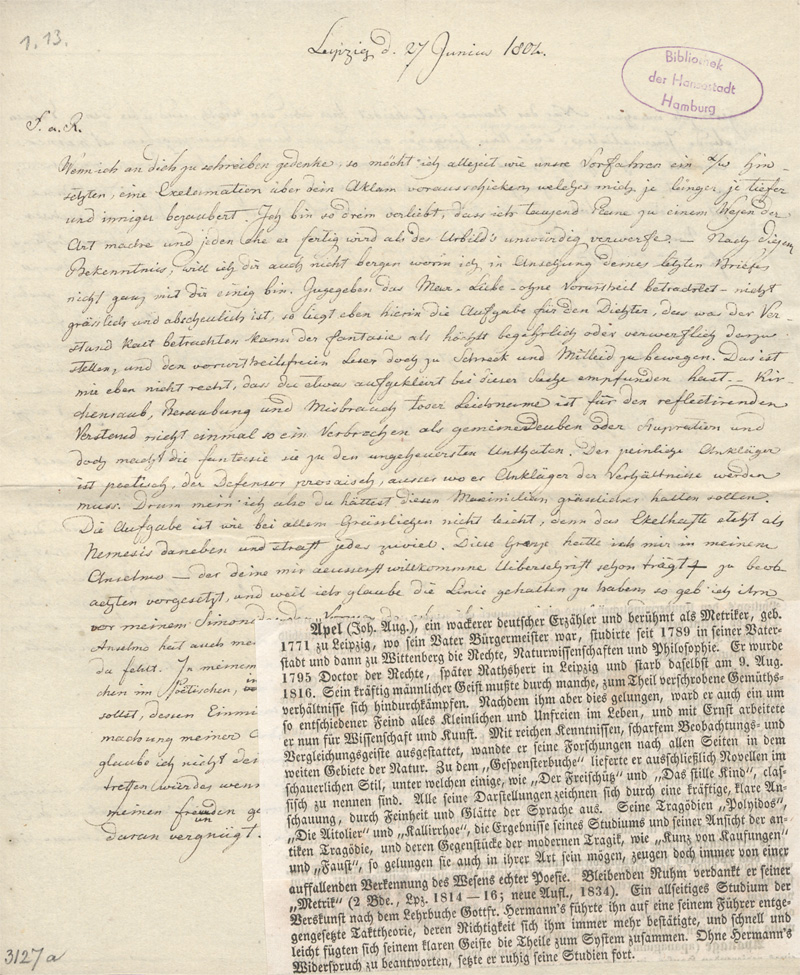 1.13.
Leipzig d. 27 Junius 1802.
Bibliothek
der Hansestadt
Hamburg
Wenn ich an dich zu schreiben gedenke, so möcht ich allezeit wie unsre Vorfahren ein hin-
setzten, eine Exclamation über dein vorausschicken, welches mich je länger je tiefer
und inniger bezaubert. Ich bin so drein verliebt, dass ich tausend Plane zu einem Wesen der
Art mache und jeden ehe er fertig wird als des Urbild's unwürdig verwerfe. — Nach diesem
Bekenntniss, will ich dir auch nicht bergen worin ich in Ansehung deines letzten Briefes
nicht ganz mit dir einig bin. Zugegeben das - Liebe - ohne Vorurtheil betrachtet - nicht
grässlich und abscheulich ist, so liegt eben hierin die Aufgabe für den Dichter, das was der Ver-
stand kalt betrachten kann der Fantasie als höchst begehrlich oder verwerflich darzu-
stellen, und den vorurtheilsfreien Leser doch zu Schreck und Mitleid zu bewegen. Das ist
mir eben nicht recht, dass du etwas aufgeklärt bei dieser Sache empfunden hast. - Kir-
chenraub, Beraubung und Misbrauch toter Leichname ist für den reflectirenden
Verstand nicht einmal so ein Verbrechen als gemeines oder und
doch macht die fantasie sie zu den ungeheuersten Unthaten. Der peinliche Ankläger
ist poetisch, der Defensor prosaisch, ausser wo er Ankläger der Verhältnisse werden
muss. Drum mein ich also du hättest diesen Maximilian grässlicher halten sollen.
Die Aufgabe ist wie bei allem Grässlichen nicht leicht, denn das Ekelhafte steht als
Nemesis daneben und straft jedes zuviel. Diese Grenze hatte ich mir in meinem
Anselmo — der deine mir aeusserst willkommne Ueberschrift schon trägt zu beob-
achten vorgesetzt, und weil ich glaube die Linie gehalten zu haben, so geb ich ihm
vor meinem
Anselmo hat auch
da fehlt. In meinem
chen im Poetischen,
sollst, dessen
machung meiner
glaube ich nicht
treffen würde, wenn
meinen
daran vergnügt.
Apel (Joh. Aug.), ein wackerer deutscher Erzähler und berühmt als Metriker, geb.
1771 zu Leipzig, wo sein Vater Bürgermeister war, studirte seit 1789 in seiner Vater-
stadt und dann zu Wittenberg die Rechte, Naturwissenschaften und Philosophie. Er wurde
1795 Doctor der Rechte, später Rathsherr in Leipzig und starb daselbst am 9. Aug.
1816. Sein kräftig männlicher Geist mußte durch manche, zum Theil verschrobene Gemüths-
verhältnisse sich hindurchkämpfen. Nachdem ihm aber dies gelungen, ward er auch ein um
so entschiedener Feind alles Kleinlichen und Unfreien im Leben, und mit Ernst arbeitete
er nun für Wissenschaft und Kunst. Mit reichen Kenntnissen, scharfem Beobachtungs- und
Vergleichungsgeiste ausgestattet, wandte er seine Forschungen nach allen Seiten in dem
weiten Gebiete der Natur. Zu dem „Gespensterbuche“ lieferte er ausschließlich Novellen im
schauerlichen Stil, unter welchen einige, wie „Der Freischütz“ und „Das stille Kind“, clas-
sisch zu nennen sind. Alle seine Darstellungen zeichnen sich durch eine kräftige, klare An-
schauung, durch Feinheit und Glätte der Sprache aus. Seine Tragödien „Polyidos“,
„Die Aitolier“ und „Kallirrhoe“, die Ergebnisse seines Studiums und seiner Ansicht der an-
tiken Tragödie, und deren Gegenstücke der modernen Tragik, wie „Kunz von Kaufungen“
und „Faust“, so gelungen sie auch in ihrer Art sein mögen, zeugen doch immer von einer
auffallenden Verkennung des Wesens echter Poesie. Bleibenden Ruhm verdankt er seiner
„Metrik“ (2 Bde., Lpz. 1814—16; neue Aufl., 1834). Ein allseitiges Studium der
Verskunst nach dem Lehrbuche Gottfr. Hermann's führte ihn auf eine seinem Führer entge-
gengesetzte Takttheorie, deren Richtigkeit sich ihm immer mehr bestätigte, und schnell und
leicht fügten sich seinem klaren Geiste die Theile zum System zusammen. Ohne Hermann's
Widerspruch zu beantworten, setzte er ruhig seine Studien fort.
3127a